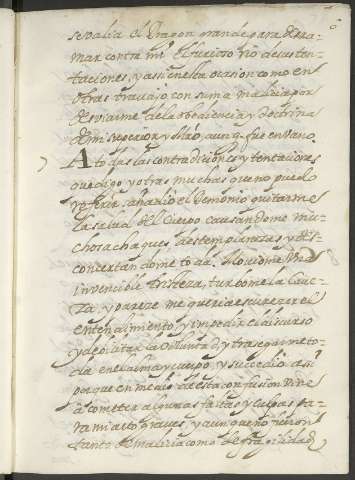 se valia el Dragon grande para derra-
mar contra mi el furioso rio de sus ten-
taciones, y assi en esta ocasion como en
otras travajo con suma malicia por
desviarme de la obediencia y doctrina
de mi superior y dixo, aunq fue en vano.
A todas las contradiciones y tentaciones
que digo y otras muchas que no puedo
referir, añadio el Demonio quitarme
la salud del Cuerpo causandome mu-
chos achaques, destemplanzas y des-
concertandome toda. Moviome una
invencible tristeza, turbome la Cave-
za. y pareze me queria escurezer el
entendimiento y impedir el discurso
y devilitar la voluntad, y trasegarme to-
da en el alma y cuerpo, y succedio assi
porque en medio de esta confusion vine
a cometer algunas faltas y culpas pa-
ra mi arto graves, y aunque no fueron
tanto de malicia como de fragilidad